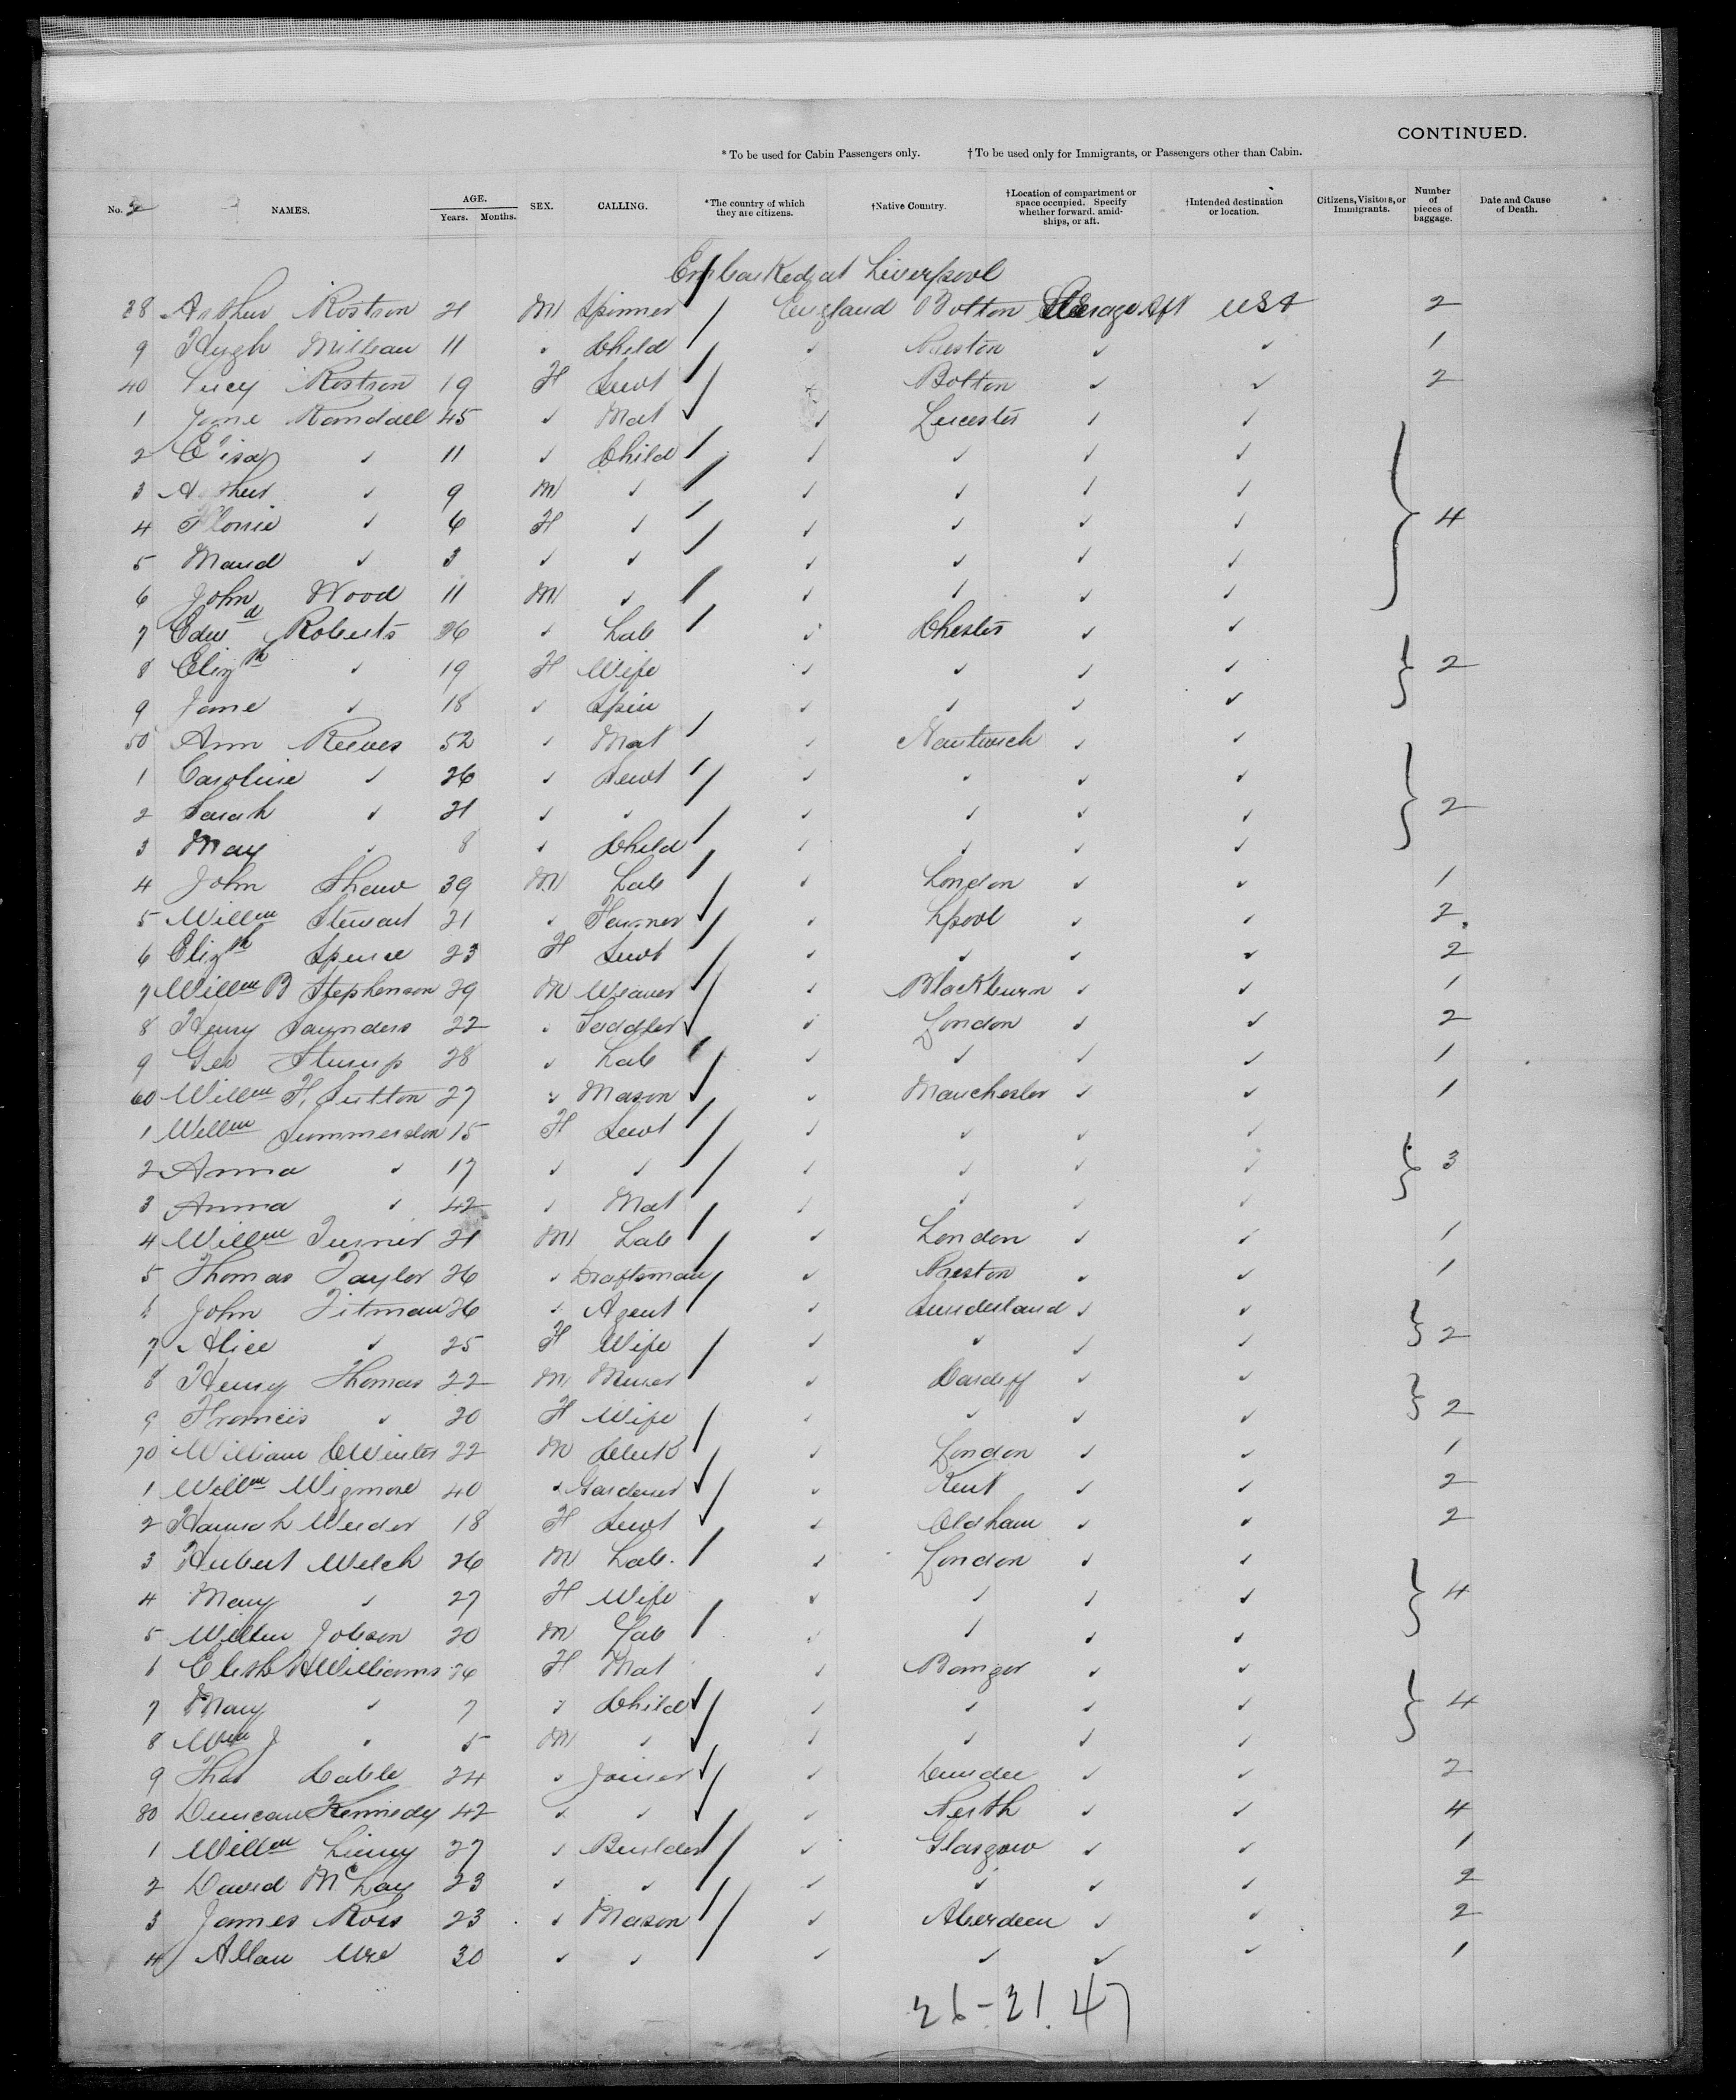 CONTINUED.
* To be used for Cabin Passengers only. † To be used only for Immigrants, or Passengers other than Cabin.
No. NAMES. AGE. Years. Months. SEX. CALLING. *The country of which they are citizens. †Native Country. †Location of compartment or space occupied. Specify whether forward, amidships, or aft. †Intended destination or location. Citizens, Visitors, or Immigrants. Number of pieces of baggage. Date and Cause of Death.
Embarked at Liverpool
38 Arthur Rostron 21 M Spinner England Bolton Steerage Aft USA 2
9 Hugh 11 ✓ Child ✓ Preston ✓ ✓ 1
40 Lucy Rostron 19 F Servt ✓ Bolton ✓ ✓ 2
1 Jane Randall 45 ✓ Mat ✓ Leicester ✓ ✓
2 Eliza ✓ 11 ✓ Child ✓ ✓ ✓ ✓
3 Arthur ✓ 9 M ✓ ✓ ✓ ✓ ✓
4 Florrie ✓ 6 F ✓ ✓ ✓ ✓ ✓ } 4
5 Maud ✓ 3 ✓ ✓ ✓ ✓ ✓ ✓
6 John Wood 11 M ✓ ✓ ✓ ✓ ✓
7 Edwd Roberts 26 ✓ Lab ✓ Chester ✓ ✓
8 Elizth ✓ 19 F Wife ✓ ✓ ✓ ✓ } 2
9 Jane ✓ 18 ✓ Spin ✓ ✓ ✓ ✓
50 Ann Reeves 52 ✓ Mat ✓ Nantwich ✓ ✓
1 Caroline ✓ 26 ✓ Servt ✓ ✓ ✓ ✓
2 Sarah ✓ 21 ✓ ✓ ✓ ✓ ✓ ✓ } 2
3 May ✓ 8 ✓ Child ✓ ✓ ✓ ✓
4 John Shaw 39 M Lab ✓ London ✓ ✓ 1
5 Willm Stewart 21 ✓ Farmer ✓ Lpool ✓ ✓ 2
6 Elizth Spence 23 F Servt ✓ ✓ ✓ ✓ 2
7 Willm B Stephenson 29 M Weaver ✓ Blackburn ✓ ✓ 1
8 Henry Saunders 22 ✓ Saddler ✓ London ✓ ✓ 2
9 Geo 28 ✓ Lab ✓ ✓ ✓ ✓ 1
60 Willm H. Sutton 27 ✓ Mason ✓ Manchester ✓ ✓ 1
1 Willm 15 F Servt ✓ ✓ ✓ ✓
2 Anna ✓ 17 ✓ ✓ ✓ ✓ ✓ ✓ } 3
3 Anna ✓ 42 ✓ Mat ✓ ✓ ✓ ✓
4 Willm Turner 21 M Lab ✓ London ✓ ✓ 1
5 Thomas Taylor 26 ✓ Draftsman ✓ Preston ✓ ✓ 1
6 John Titman 26 ✓ Agent ✓ Sunderland ✓ ✓
7 Alice ✓ 25 F Wife ✓ ✓ ✓ ✓ } 2
8 Henry Thomas 22 M Miner ✓ Cardiff ✓ ✓
9 Francis ✓ 20 F Wife ✓ ✓ ✓ ✓ } 2
70 William C Winter 22 M Clerk ✓ London ✓ ✓ 1
1 Willm Wigmore 40 ✓ Gardener ✓ Kent ✓ ✓ 2
2 Hannah 18 F Servt ✓ Oldham ✓ ✓ 2
3 Hubert Welch 26 M Lab. ✓ London ✓ ✓
4 Mary ✓ 27 F Wife ✓ ✓ ✓ ✓ } 4
5 Jobson 20 M Lab ✓ ✓ ✓ ✓
6 Williams F Mat ✓ Bangor ✓ ✓
7 Mary ✓ 7 ✓ Child ✓ ✓ ✓ ✓ } 4
8 Wm J ✓ 5 M ✓ ✓ ✓ ✓ ✓
9 Thos Cable 24 ✓ Joiner ✓ Dundee ✓ ✓ 2
80 Duncan Kennedy 42 ✓ ✓ ✓ Perth ✓ ✓ 4
1 Willm 27 ✓ Builder ✓ Glasgow ✓ ✓ 1
2 David McLay 23 ✓ ✓ ✓ ✓ ✓ ✓ 2
3 James Ross 23 ✓ Mason ✓ Aberdeen ✓ ✓ 2
4 Allan Ure 30 ✓ ✓ ✓ ✓ ✓ ✓ 1
26-21.47